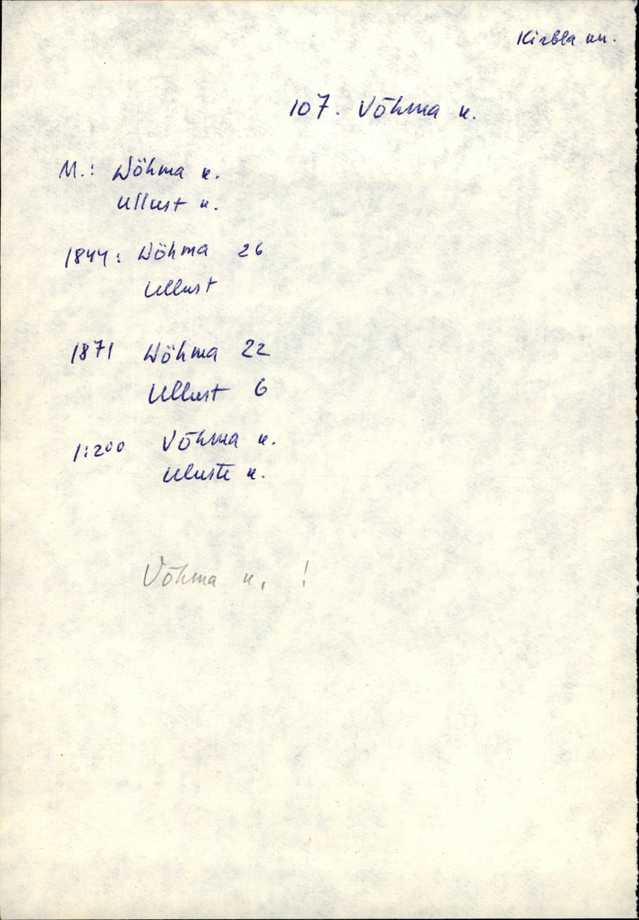 Kirbla khk.
107. Võhma k.
M.: Wöhma k.
Ullust k.
1844: Wöhma 26
Ullust
1871 Wöhma 22
Ullust 6
1:200 Võhma k.
Uluste k.
Võhma k. !